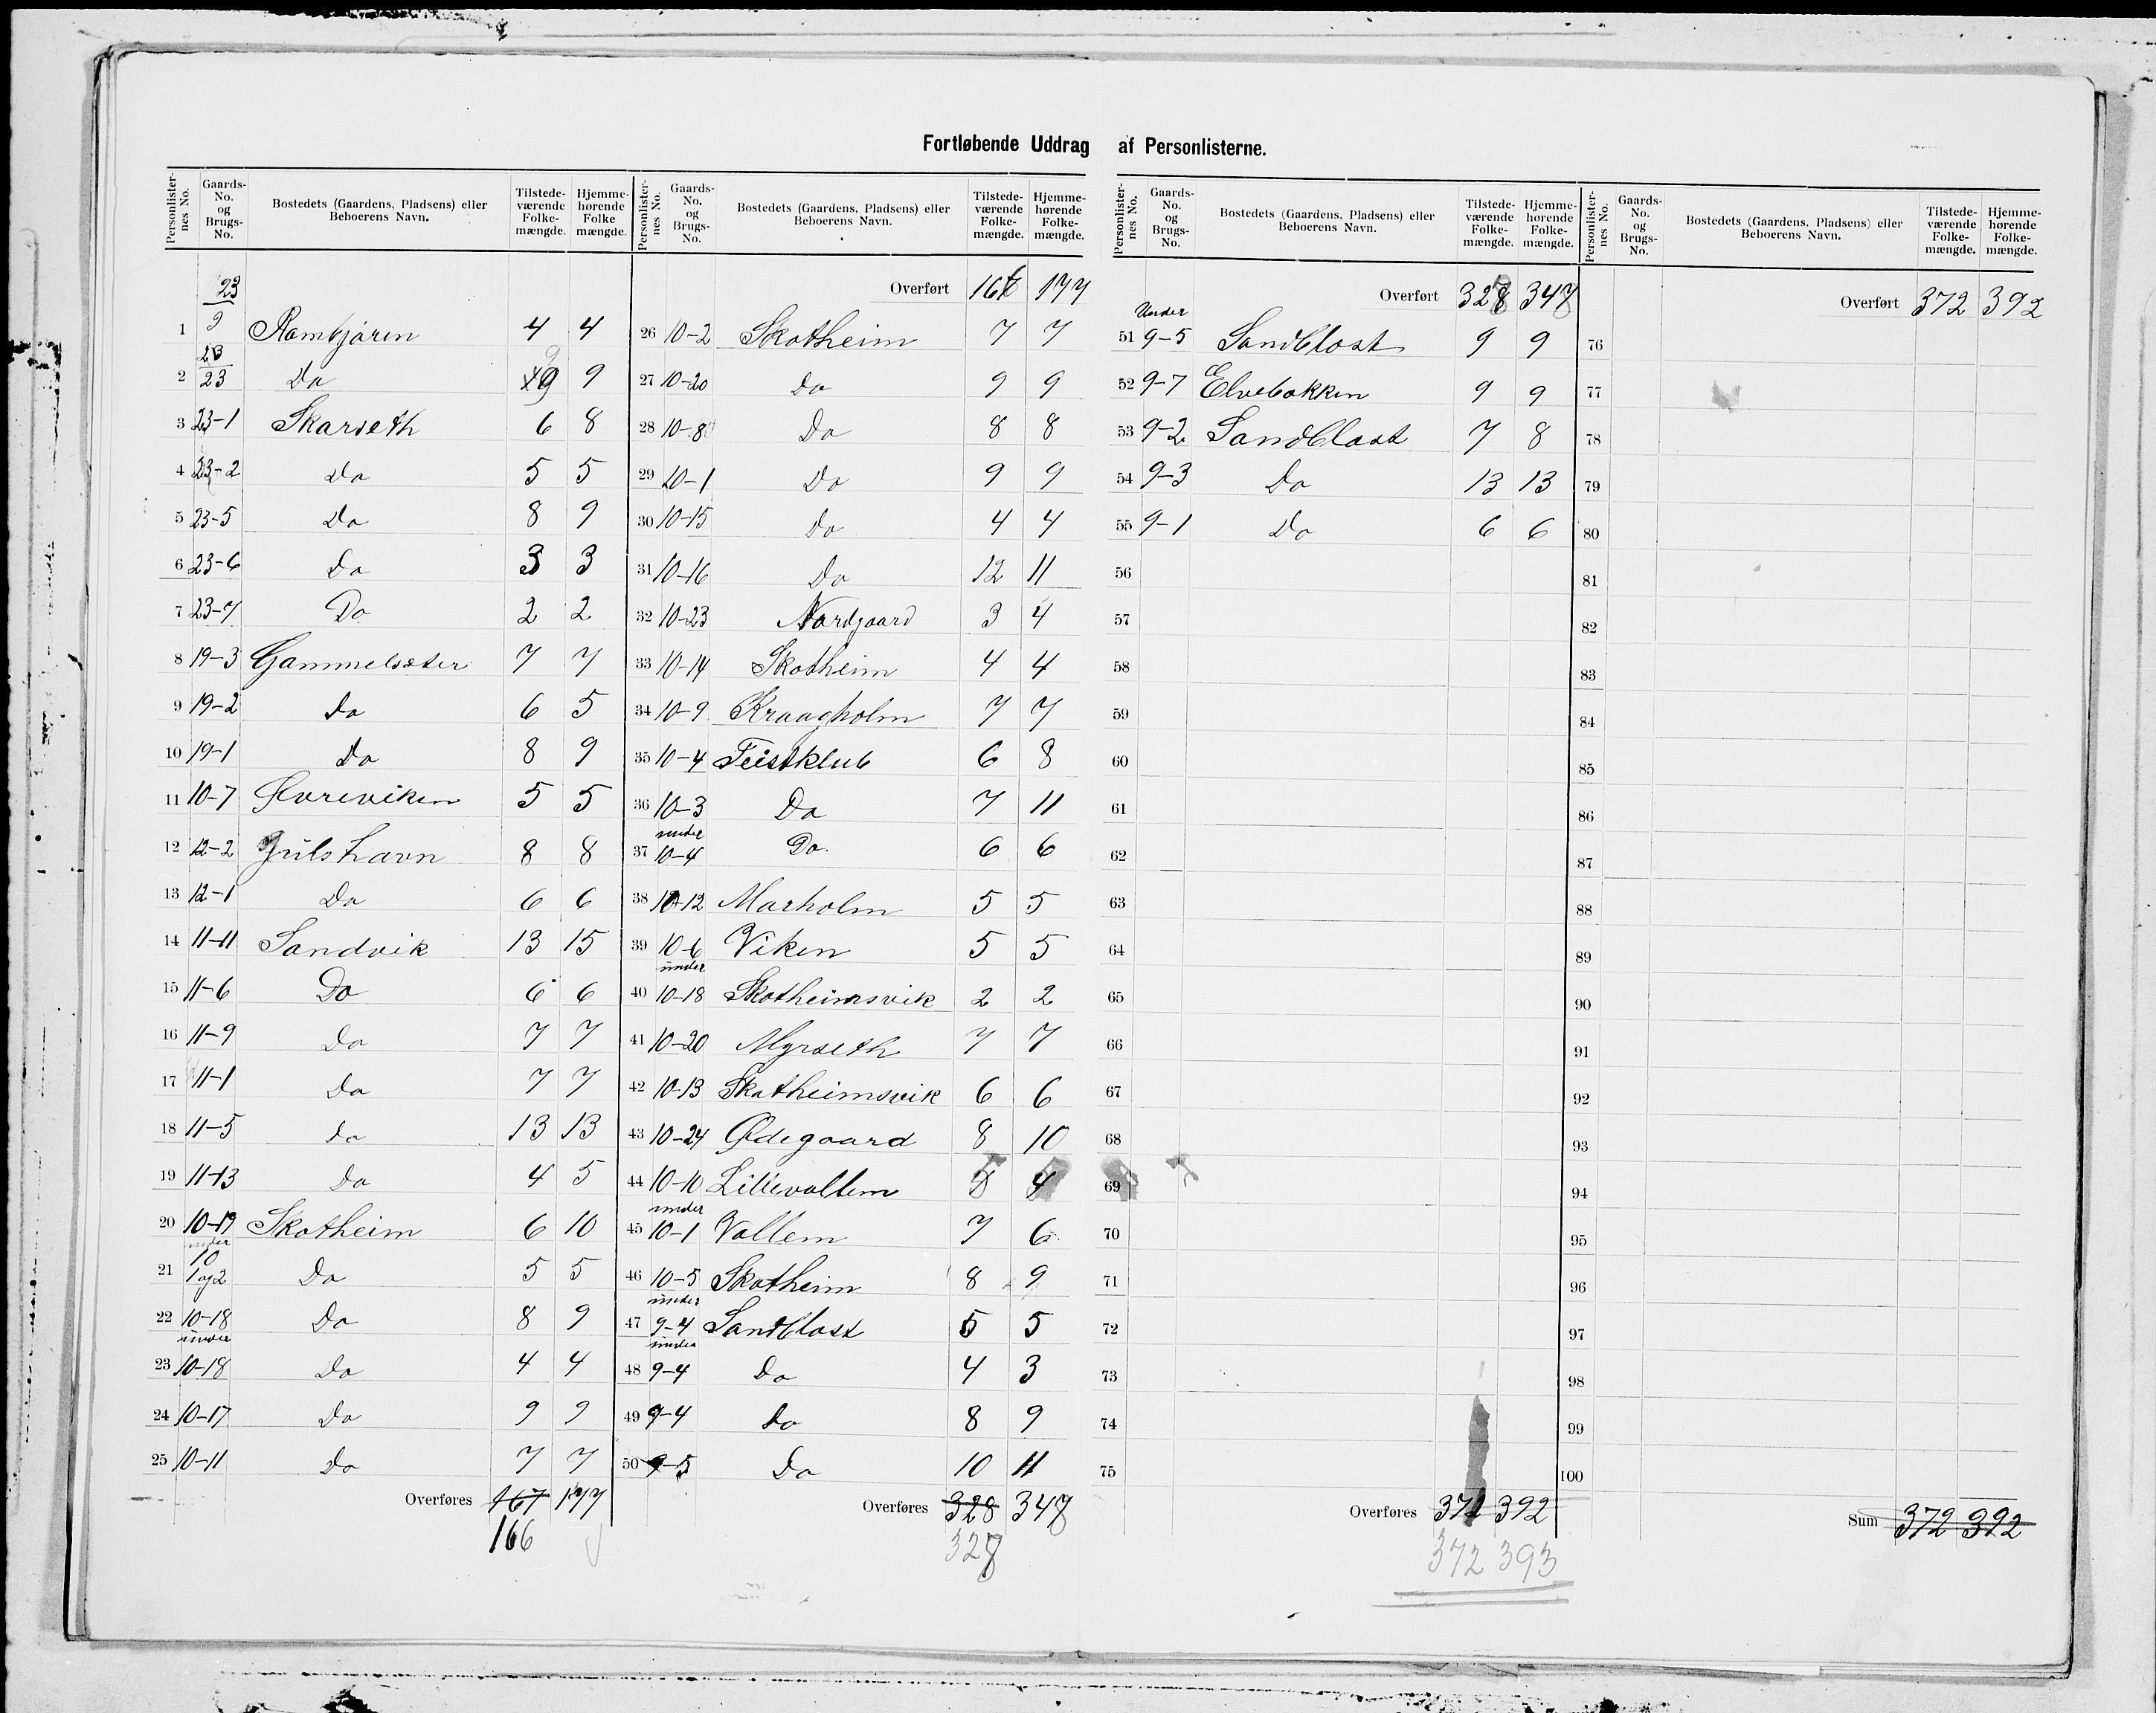 Fortløbende Uddrag af Personlisterne.
Personlisternes No. Gaards-No. og Brugs-No. Bostedets (Gaardens, Pladsens) eller Beboerens Navn. Tilstedeværende Folkemængde. Hjemmehørende Folkemængde.
23
1 9 4 4
2 23 23 Do 9 9
3 23-1 Skarseth 6 8
4 23-2 Do 5 5
5 23-5 Do 8 9
6 23-6 Do 3 3
7 23-7 Do 2 2
8 19-3 Gammelsæter 7 7
9 19-2 Do 6 5
10 19-1 Do 8 9
11 10-7 Øvreviken 5 5
12 12-2 Julshavn 8 8
13 12-1 Do 6 6
14 11-11 Sandvik 13 15
15 11-6 Do 6 6
16 11-9 Do 7 7
17 11-1 Do 7 7
18 11-5 Do 13 13
19 11-13 Do 4 5
20 10-19 Skotheim 6 10
under
21 10 1og2 Do 5 5
22 10-18 Do 8 9
under
23 10-18 Do 4 4
24 10-17 Do 9 9
25 10-11 Do 7 7
Overføres 167 177
166
Personlisternes No. Gaards-No. og Brugs-No. Bostedets (Gaardens, Pladsens) eller Beboerens Navn. Tilstedeværende Folkemængde. Hjemmehørende Folkemængde.
Overført 166 177
26 10-2 Skotheim 7 7
27 10-20 Do 9 9
28 10-8 Do 8 8
29 10-1 Do 9 9
30 10-15 Do 4 4
31 10-16 Do 12 11
32 10-23 Nordgaard 3 4
33 10-14 Skotheim 4 4
34 10-9 Kraagholm 7 7
35 10-4 Feistklub 6 8
36 10-3 Do 7 11
under
37 10-4 Do. 6 6
38 10-12 Marholm 5 5
39 10-6 Viken 5 5
under
40 10-18 Skotheimsvik 2 2
41 10-20 Myrseth 7 7
42 10-13 Skotheimsvik 6 6
43 10-24 Ødegaard 8 10
44 10-10 Lillevollem 4
under
45 10-1 Vollem 7 6
46 10-5 Skotheim 8 9
under
47 9-4 Sandblost 5 5
under
48 9-4 Do 4 3
49 9-4 Do 8 9
50 9-5 Do 10 11
Overføres 328 348
328
Personlisternes No. Gaards-No. og Brugs-No. Bostedets (Gaardens, Pladsens) eller Beboerens Navn. Tilstedeværende Folkemængde. Hjemmehørende Folkemængde.
Overført 328 348
Under
51 9-5 Sandblost 9 9
52 9-7 Elvebakken 9 9
53 9-2 Sandblost 7 8
54 9-3 Do 13 13
55 9-1 Do 6 6
56
57
58
59
60
61
62
63
64
65
66
67
68
69
70
71
72
73
74
75
Overføres 372 392
372 393
Personlisternes No. Gaards-No. og Brugs-No. Bostedets (Gaardens, Pladsens) eller Beboerens Navn. Tilstedeværende Folkemængde. Hjemmehørende Folkemængde.
Overført 372 392
76
77
78
79
80
81
82
83
84
85
86
87
88
89
90
91
92
93
94
95
96
97
98
99
100
Sum 372 392